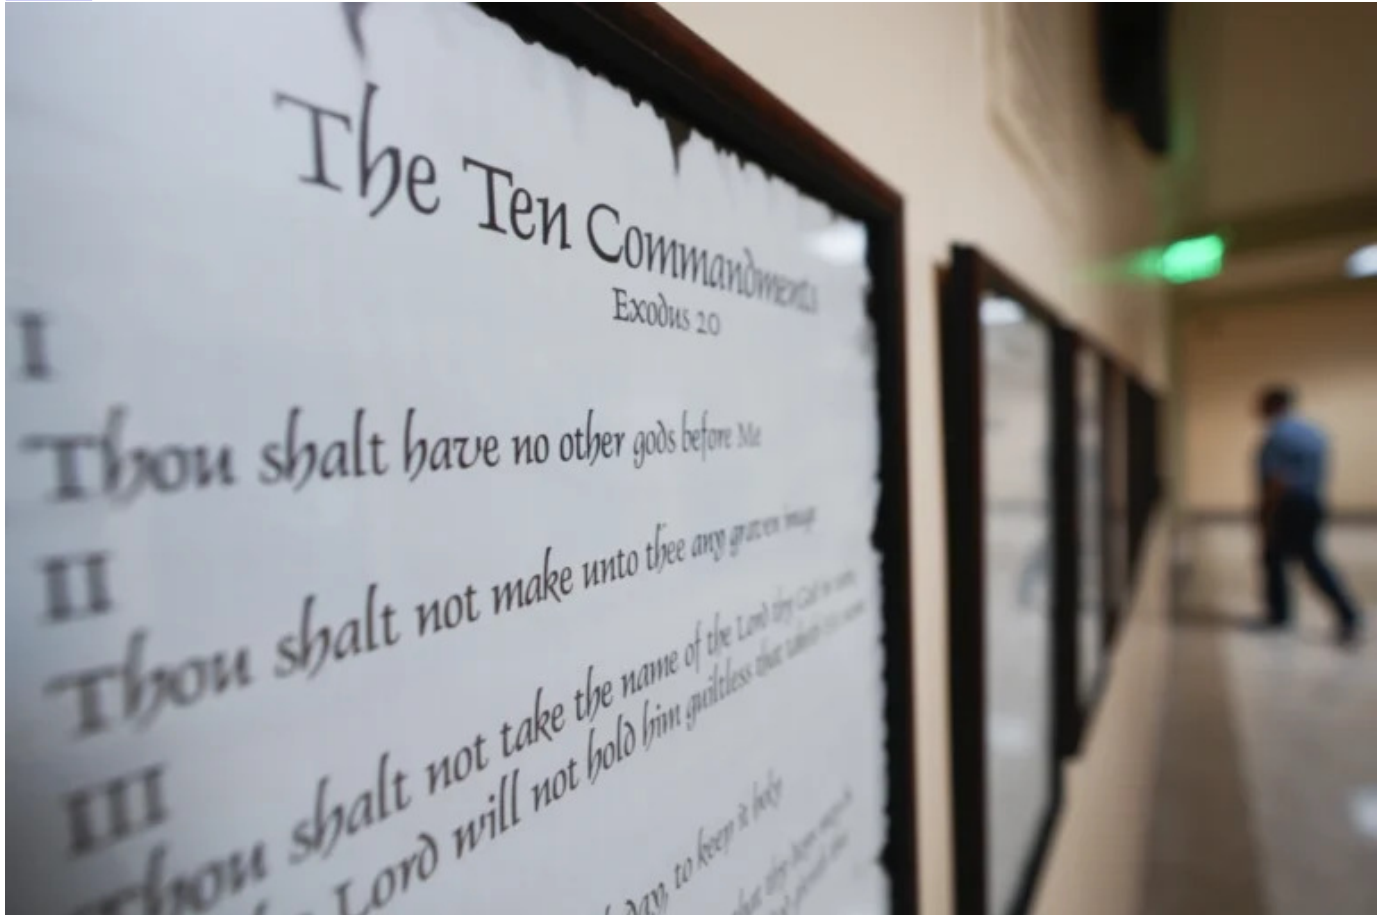 The Ten Commandments
Exodus 20
I
Thou shalt have no other gods before Me
II
Thou shalt not make unto thee any graven image
III
Thou shalt not take the name of the Lord thy God in vain
Lord will not hold him guiltless that taketh
day, to keep it holy
that thy days